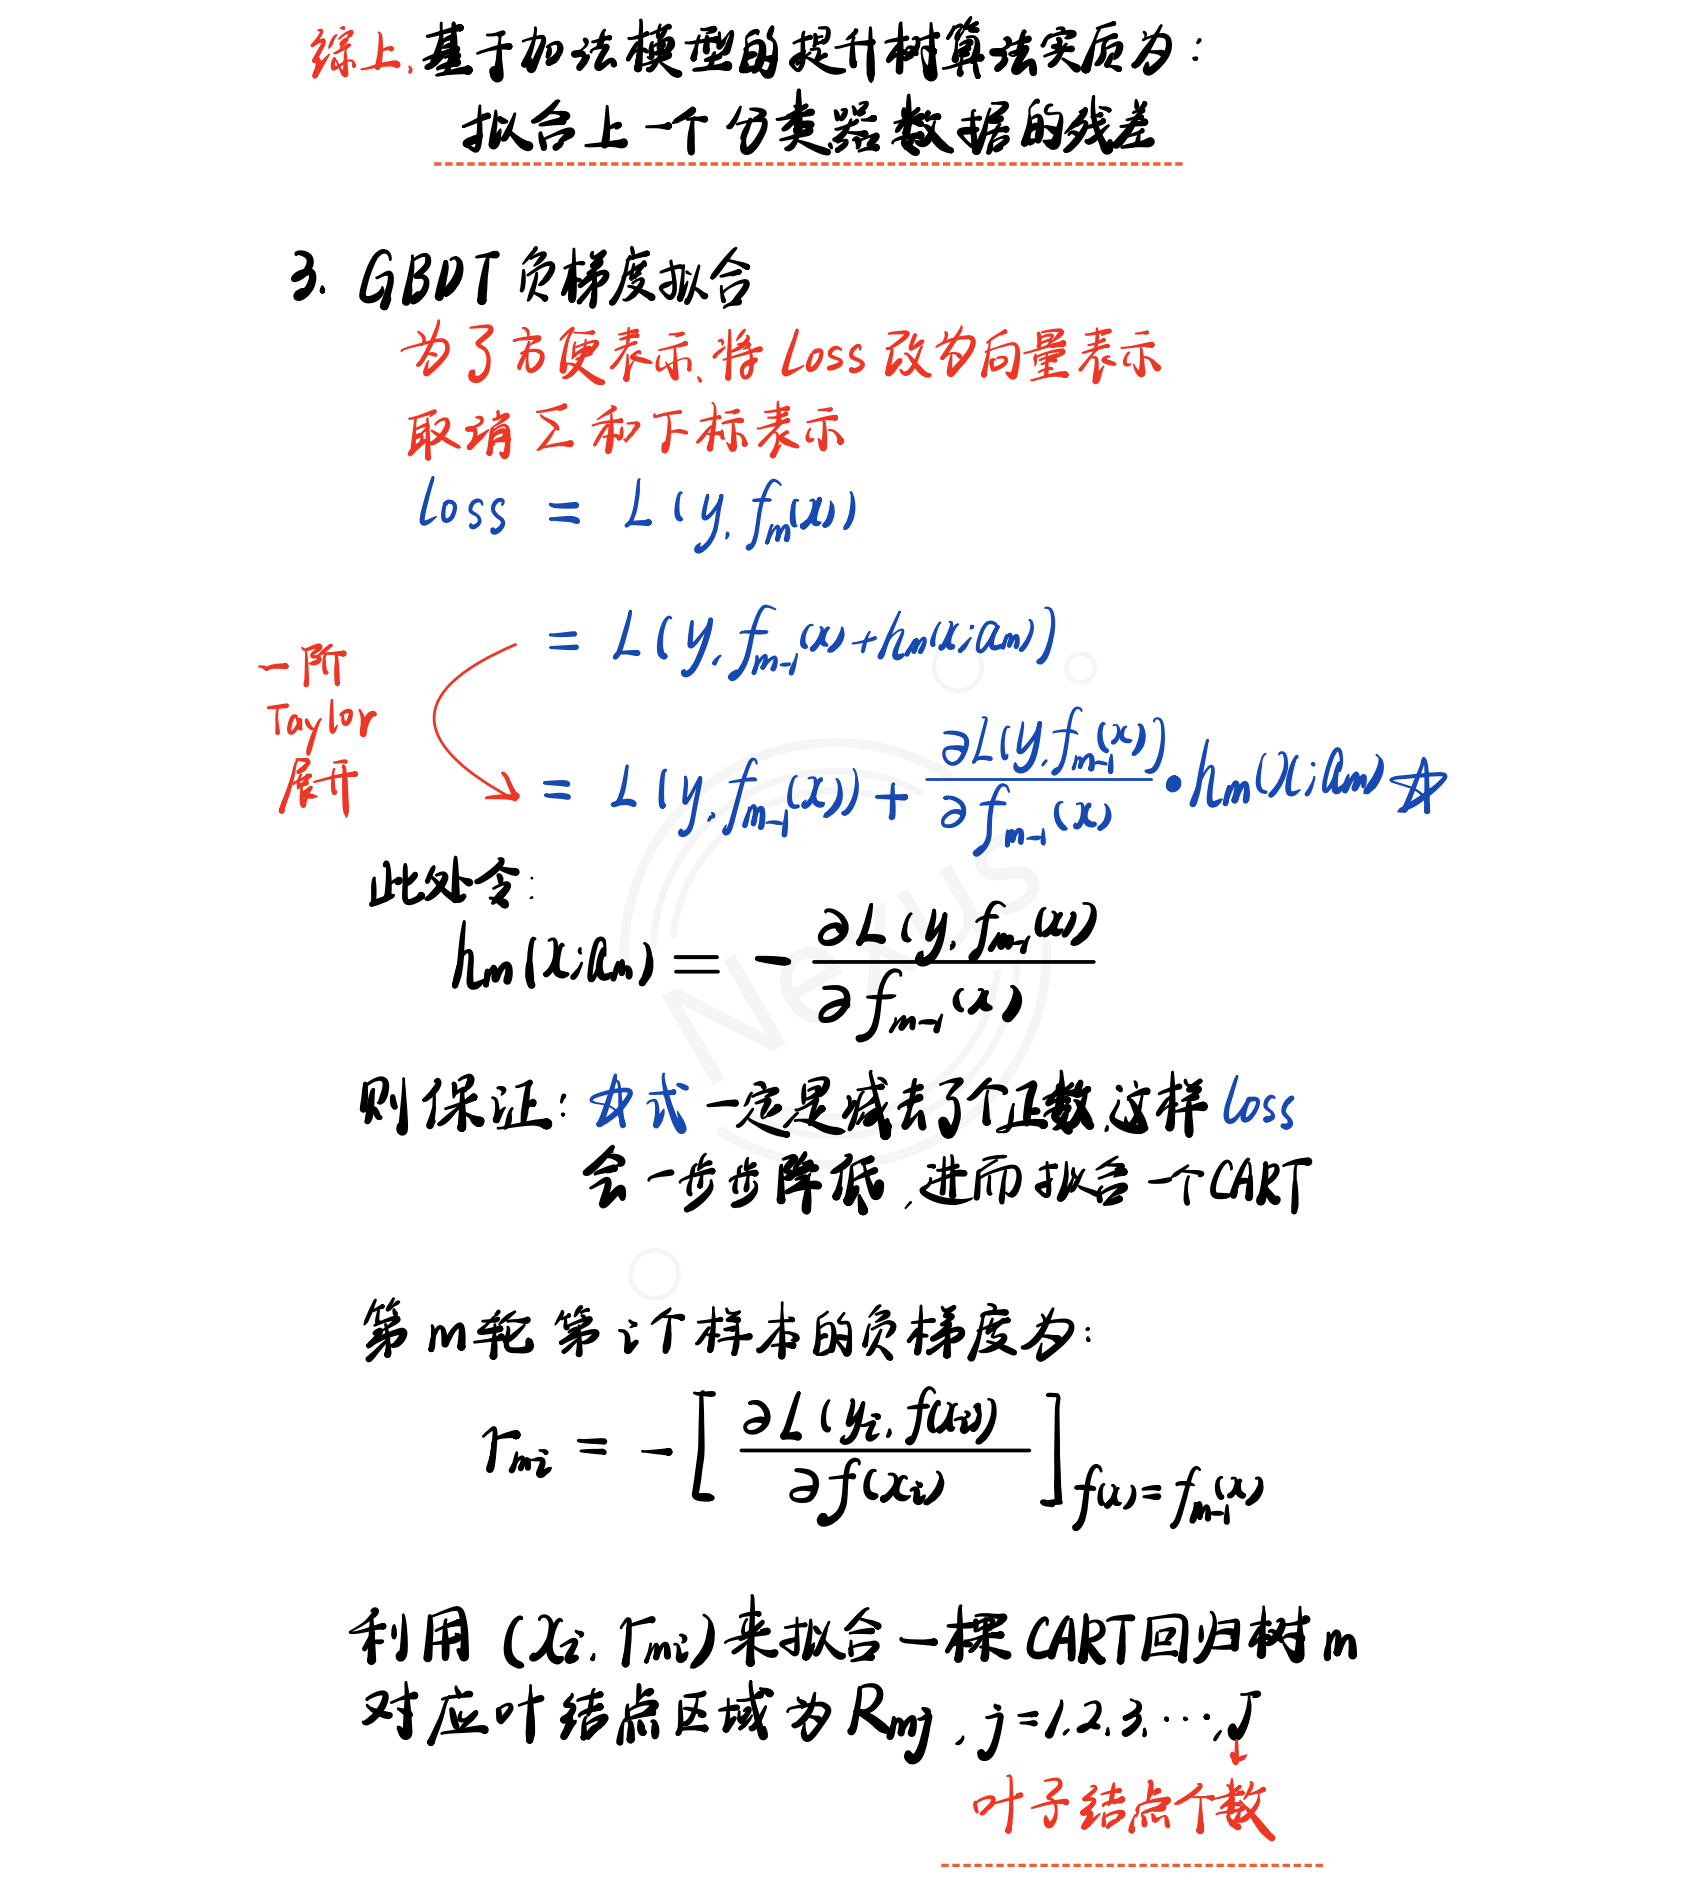 综上、基于加法模型的提升树算法实质为：
拟合上一个分类器数据的残差
3. GBDT 负梯度拟合
为了方便表示、将 Loss 改为向量表示
取消 Σ 和下标表示
Loss = L(y, f_m(x))
= L(y, f_{m-1}(x) + h_m(x; a_m))
一阶
Taylor
展开
= L(y, f_{m-1}(x)) + ∂L(y, f_{m-1}(x)) / ∂f_{m-1}(x) · h_m(x; a_m) ☆
此处令：
h_m(x; a_m) = - ∂L(y, f_{m-1}(x)) / ∂f_{m-1}(x)
则保证：☆式一定是减去了个正数，这样 loss
会一步步降低，进而拟合一个CART
第m轮 第i个样本的负梯度为：
r_{mi} = - [ ∂L(y_i, f(x_i)) / ∂f(x_i) ]_{f(x) = f_{m-1}(x)}
利用 (x_i, r_{mi}) 来拟合一棵 CART回归树m
对应叶结点区域为 R_{mj}, j = 1, 2, 3, ···, J
叶子结点个数
Nexus